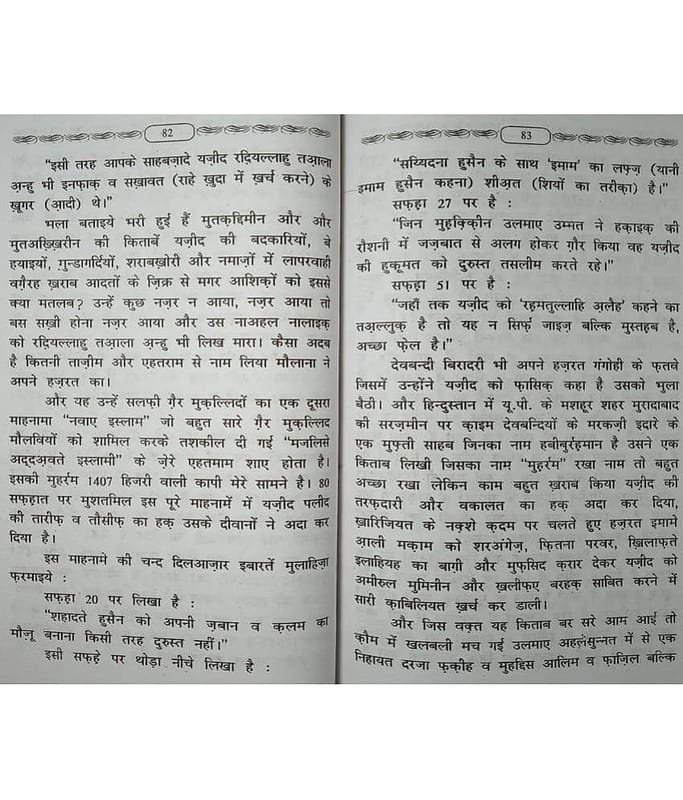 82
"इसी तरह आपके साहबज़ादे यज़ीद रद़ियल्लाहु तआ़ला
अ़न्हु भी इनफ़ाक़ व सख़ावत (राहे ख़ुदा में ख़र्च करने) के
ख़ूगर (आ़दी) थे।"
भला बताइये भरी हुई हैं मुतक़द्दिमीन और और
मुतअख़्ख़िरीन की किताबें यज़ीद की बदकारियों, बे
हयाइयों, ग़ुन्डागर्दियों, शराबख़ोरी और नमाज़ों में लापरवाही
वग़ैरह ख़राब आदतों के ज़िक्र से मगर आशिक़ों को इससे
क्या मतलब? उन्हें कुछ नज़र न आया, नज़र आया तो
बस सख़ी होना नज़र आया और उस नाअहल नालाइक़
को रद़ियल्लाहु तआ़ला अ़न्हु भी लिख मारा। कैसा अदब
है कितनी ताज़ीम और एहतराम से नाम लिया मौलाना ने
अपने हज़रत का।
और यह उन्हें सलफ़ी ग़ैर मुक़ल्लिदों का एक दूसरा
माहनामा "नवाए इस्लाम" जो बहुत सारे ग़ैर मुक़ल्लिद
मौलवियों को शामिल करके तशकील दी गई "मजलिसे
अद्दअ़वते इस्लामी" के ज़ेरे एहतमाम शाए होता है।
इसकी मुहर्रम 1407 हिजरी वाली कापी मेरे सामने है। 80
सफ़हात पर मुशतमिल इस पूरे माहनामें में यज़ीद पलीद
की तारीफ़ व तौसीफ़ का हक़ उसके दीवानों ने अदा कर
दिया है।
इस माहनामे की चन्द दिलआज़ार इबारतें मुलाहिज़ा
फ़रमाइये :
सफ़हा 20 पर लिखा है :
"शहादते हुसैन को अपनी ज़बान व क़लम का
मौज़ू बनाना किसी तरह दुरुस्त नहीं।"
इसी सफ़हे पर थोड़ा नीचे लिखा है :
83
"सय्यिदना हुसैन के साथ 'इमाम' का लफ़्ज़ (यानी
इमाम हुसैन कहना) शीअ़त (शियों का तरीक़ा) है।"
सफ़हा 27 पर है :
"जिन मुहक़्क़िक़ीन उलमाए उम्मत ने हक़ाइक़ की
रौशनी में जज़बात से अलग होकर ग़ौर किया वह यज़ीद
की हुकूमत को दुरुस्त तसलीम करते रहे।"
सफ़हा 51 पर है :
"जहाँ तक यज़ीद को 'रहमतुल्लाहि अलैह' कहने का
तअ़ल्लुक़ है तो यह न सिर्फ़ जाइज़ बल्कि मुस्तहब है,
अच्छा फ़ेल है।"
देवबन्दी बिरादरी भी अपने हज़रत गंगोही के फ़तवे
जिसमें उन्होंने यज़ीद को फ़ासिक़ कहा है उसको भुला
बैठी। और हिन्दुस्तान में यू.पी. के मशहूर शहर मुरादाबाद
की सरज़मीन पर क़ाइम देवबन्दियों के मरकज़ी इदारे के
एक मुफ़्ती साहब जिनका नाम हबीबुर्रहमान है उसने एक
किताब लिखी जिसका नाम "मुहर्रम" रखा नाम तो बहुत
अच्छा रखा लेकिन काम बहुत ख़राब किया यज़ीद की
तरफ़दारी और वकालत का हक़ अदा कर दिया,
ख़ारिजियत के नक़्शे क़दम पर चलते हुए हज़रत इमामे
आ़ली मक़ाम को शरअंगेज़, फ़ितना परवर, ख़िलाफ़ते
इलाहियह का बाग़ी और मुफ़सिद क़रार देकर यज़ीद को
अमीरुल मुमिनीन और ख़लीफ़ए बरहक़ साबित करने में
सारी क़ाबिलियत ख़र्च कर डाली।
और जिस वक़्त यह किताब बर सरे आम आई तो
क़ौम में खलबली मच गई उलमाए अहलेसुन्नत में से एक
निहायत दरजा फ़क़ीह व मुहद्दिस आलिम व फ़ाज़िल बल्कि